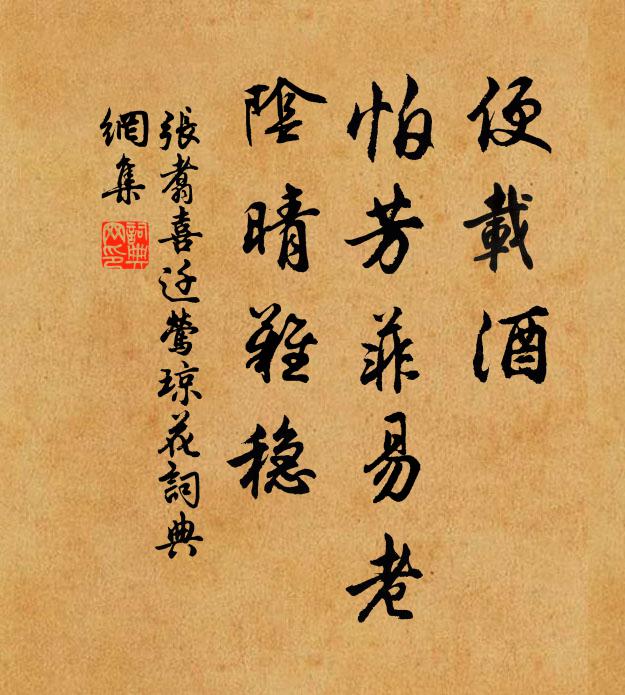 便載酒
怕芳菲易老
陰晴難稳
張翥喜迁鶯琼花詞典
網集
詞典
网印